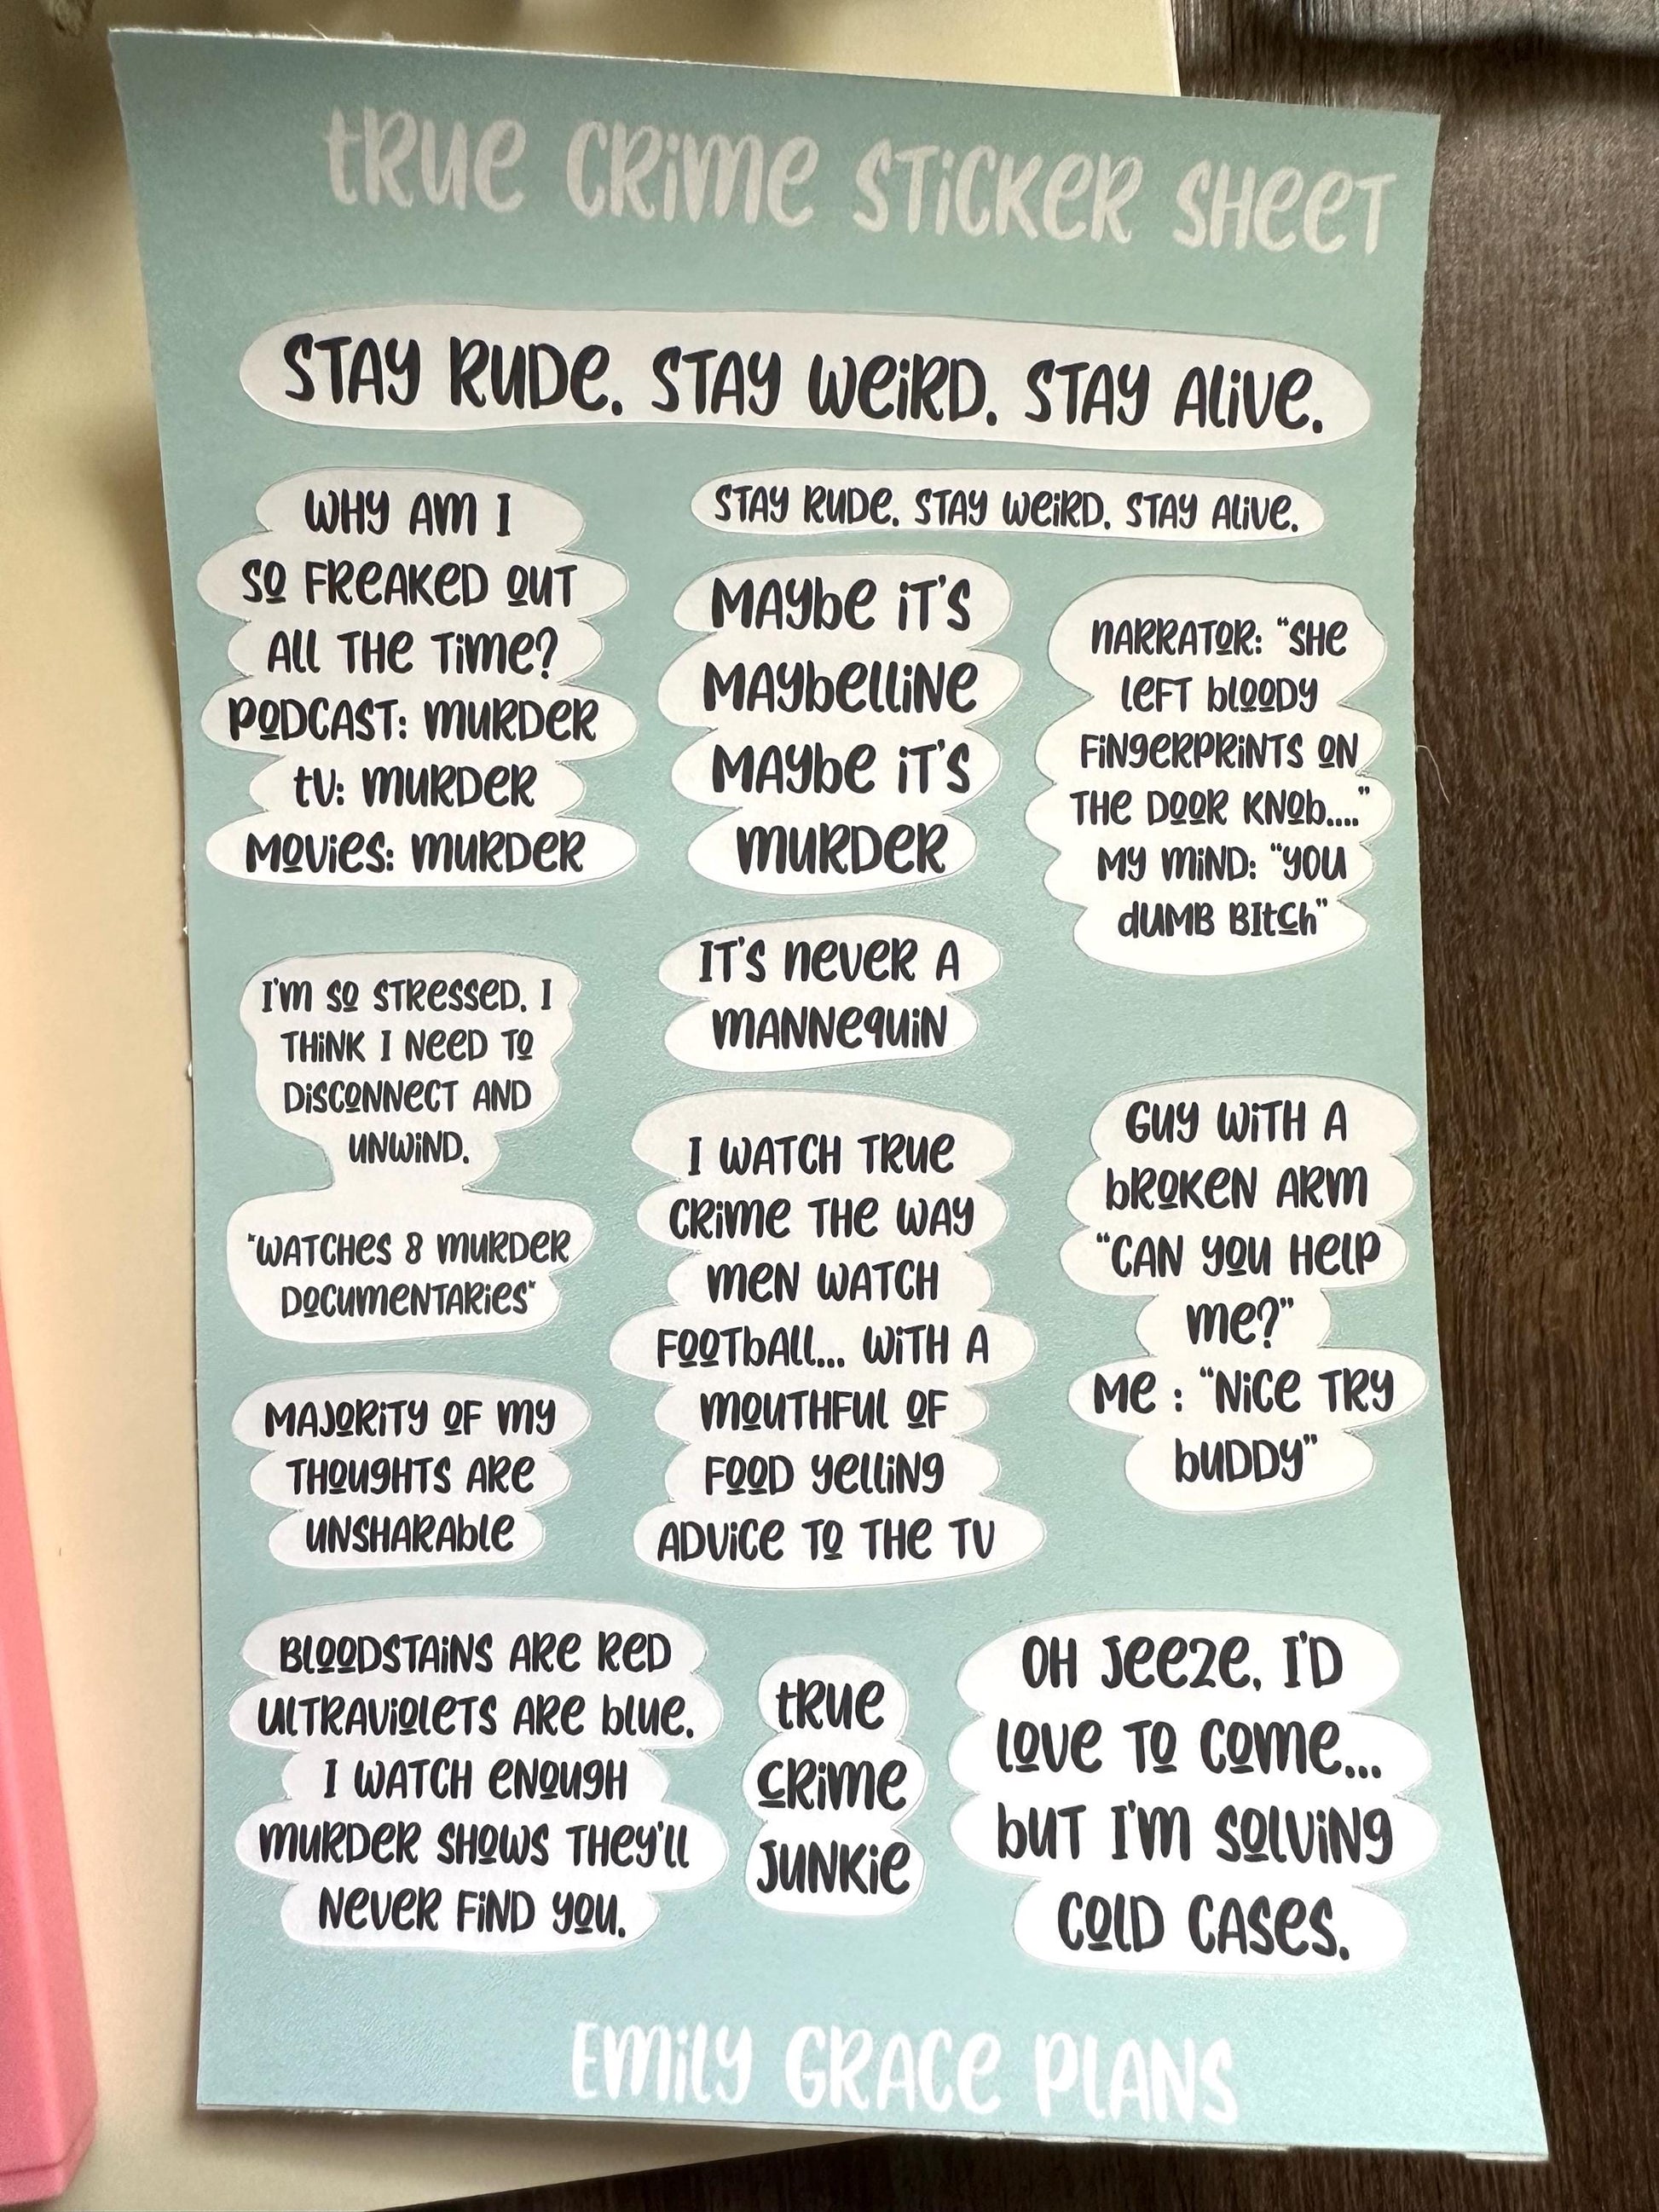 tRUe CRiMe STiCKeR SHeeT
STAY RUDe. STAY WeiRD. STAY Alive.
WHY AM I
SO FReAKeD OUT
All THe TiMe?
PODCAST: MURDeR
tV: MURDeR
MOVies: MURDeR
STAY RUDe. STAY WeiRD. STAY Alive.
MAYbe iT'S
MAYbelliNe
MAYbe iT'S
MURDeR
NARRATOR: "SHe
leFT blOODY
FiNgeRPRiNTS ON
THe DOOR KNOb...."
MY MiND: "YOU
dUMB BItCh"
IT'S NeVeR A
MANNeqUiN
I'M SO STResseD. I
THiNK I NeeD TO
DiSCONNeCT AND
UNWiND.
*WATCHes 8 MURDeR
DOCUMeNTARies*
I WATCH TRUe
CRiMe THe WAY
MeN WATCH
FOOTbAll... WiTH A
MOUTHFUl OF
FOOD YelliNg
ADViCe TO THe TV
GUY WiTH A
bROKeN ARM
"CAN YOU Help
Me?"
Me : "NiCe TRY
bUDDY"
MAJORiTY OF MY
THOUgHTS ARe
UNSHARAble
BlOODSTAiNS ARe ReD
UlTRAViOleTS ARe blUe.
I WATCH eNOUgH
MURDeR SHOWS THeY'll
NeVeR FiND YOU.
tRUe
CRiMe
JUNKie
OH Jeeze, I'D
lOVe TO COMe...
bUT I'M SOlViNg
COlD CASes.
EMilY GRACe PlANS